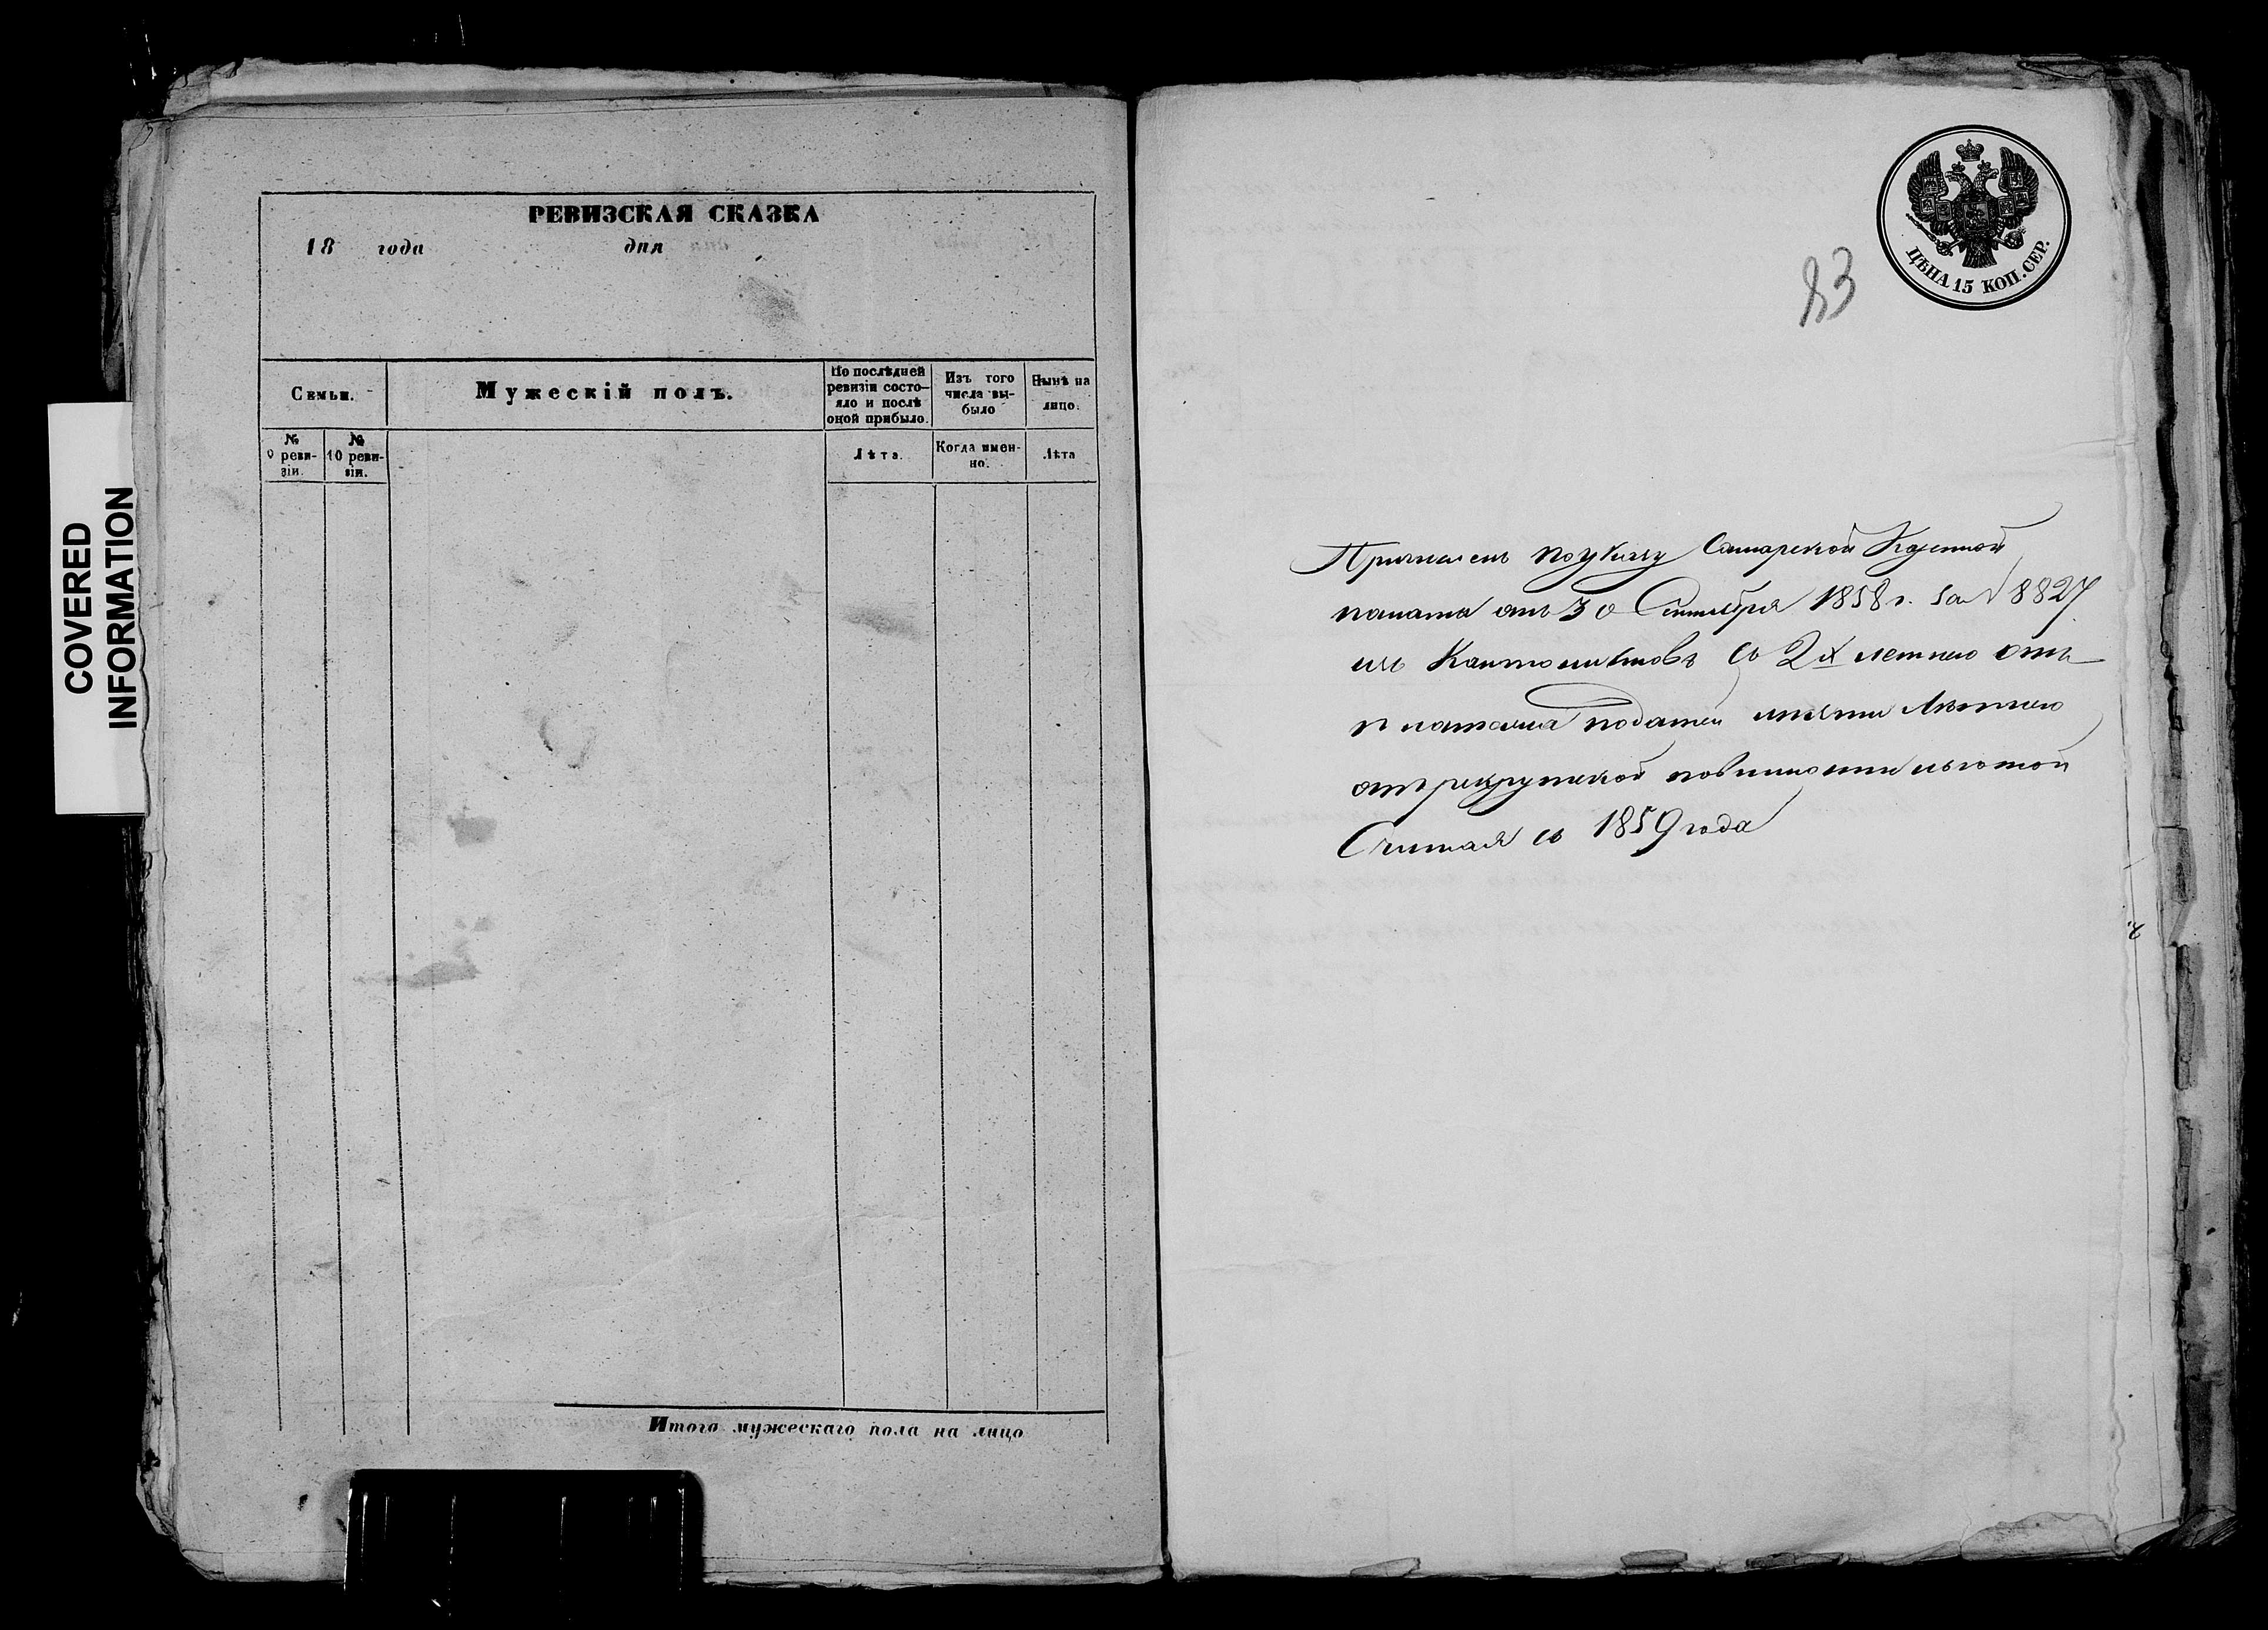 COVERED
INFORMATION
РЕВИЗСКАЯ СКАЗКА
18 года дня
Семьи.
Мужескій полъ.
По послѣдней
ревизіи состо-
яло и послѣ
оной прибыло.
Изъ того
числа вы-
было
Нынѣ на
лицо.
№
9 реви-
зіи.
№
10 реви-
зіи.
Лѣта.
Когда имен-
но.
Лѣта
Итого мужескаго пола на лицо
ЦѢНА 15 КОП. СЕР.
83
Причисленъ по указу Самарской Казенной
палаты отъ 30 Сентября 1858 г. за № 8827
изъ Кантонистовъ съ 2х летнею отъ
платежа податей и летнею
отъ рекрутской повинности льготой
Считая съ 1859 года